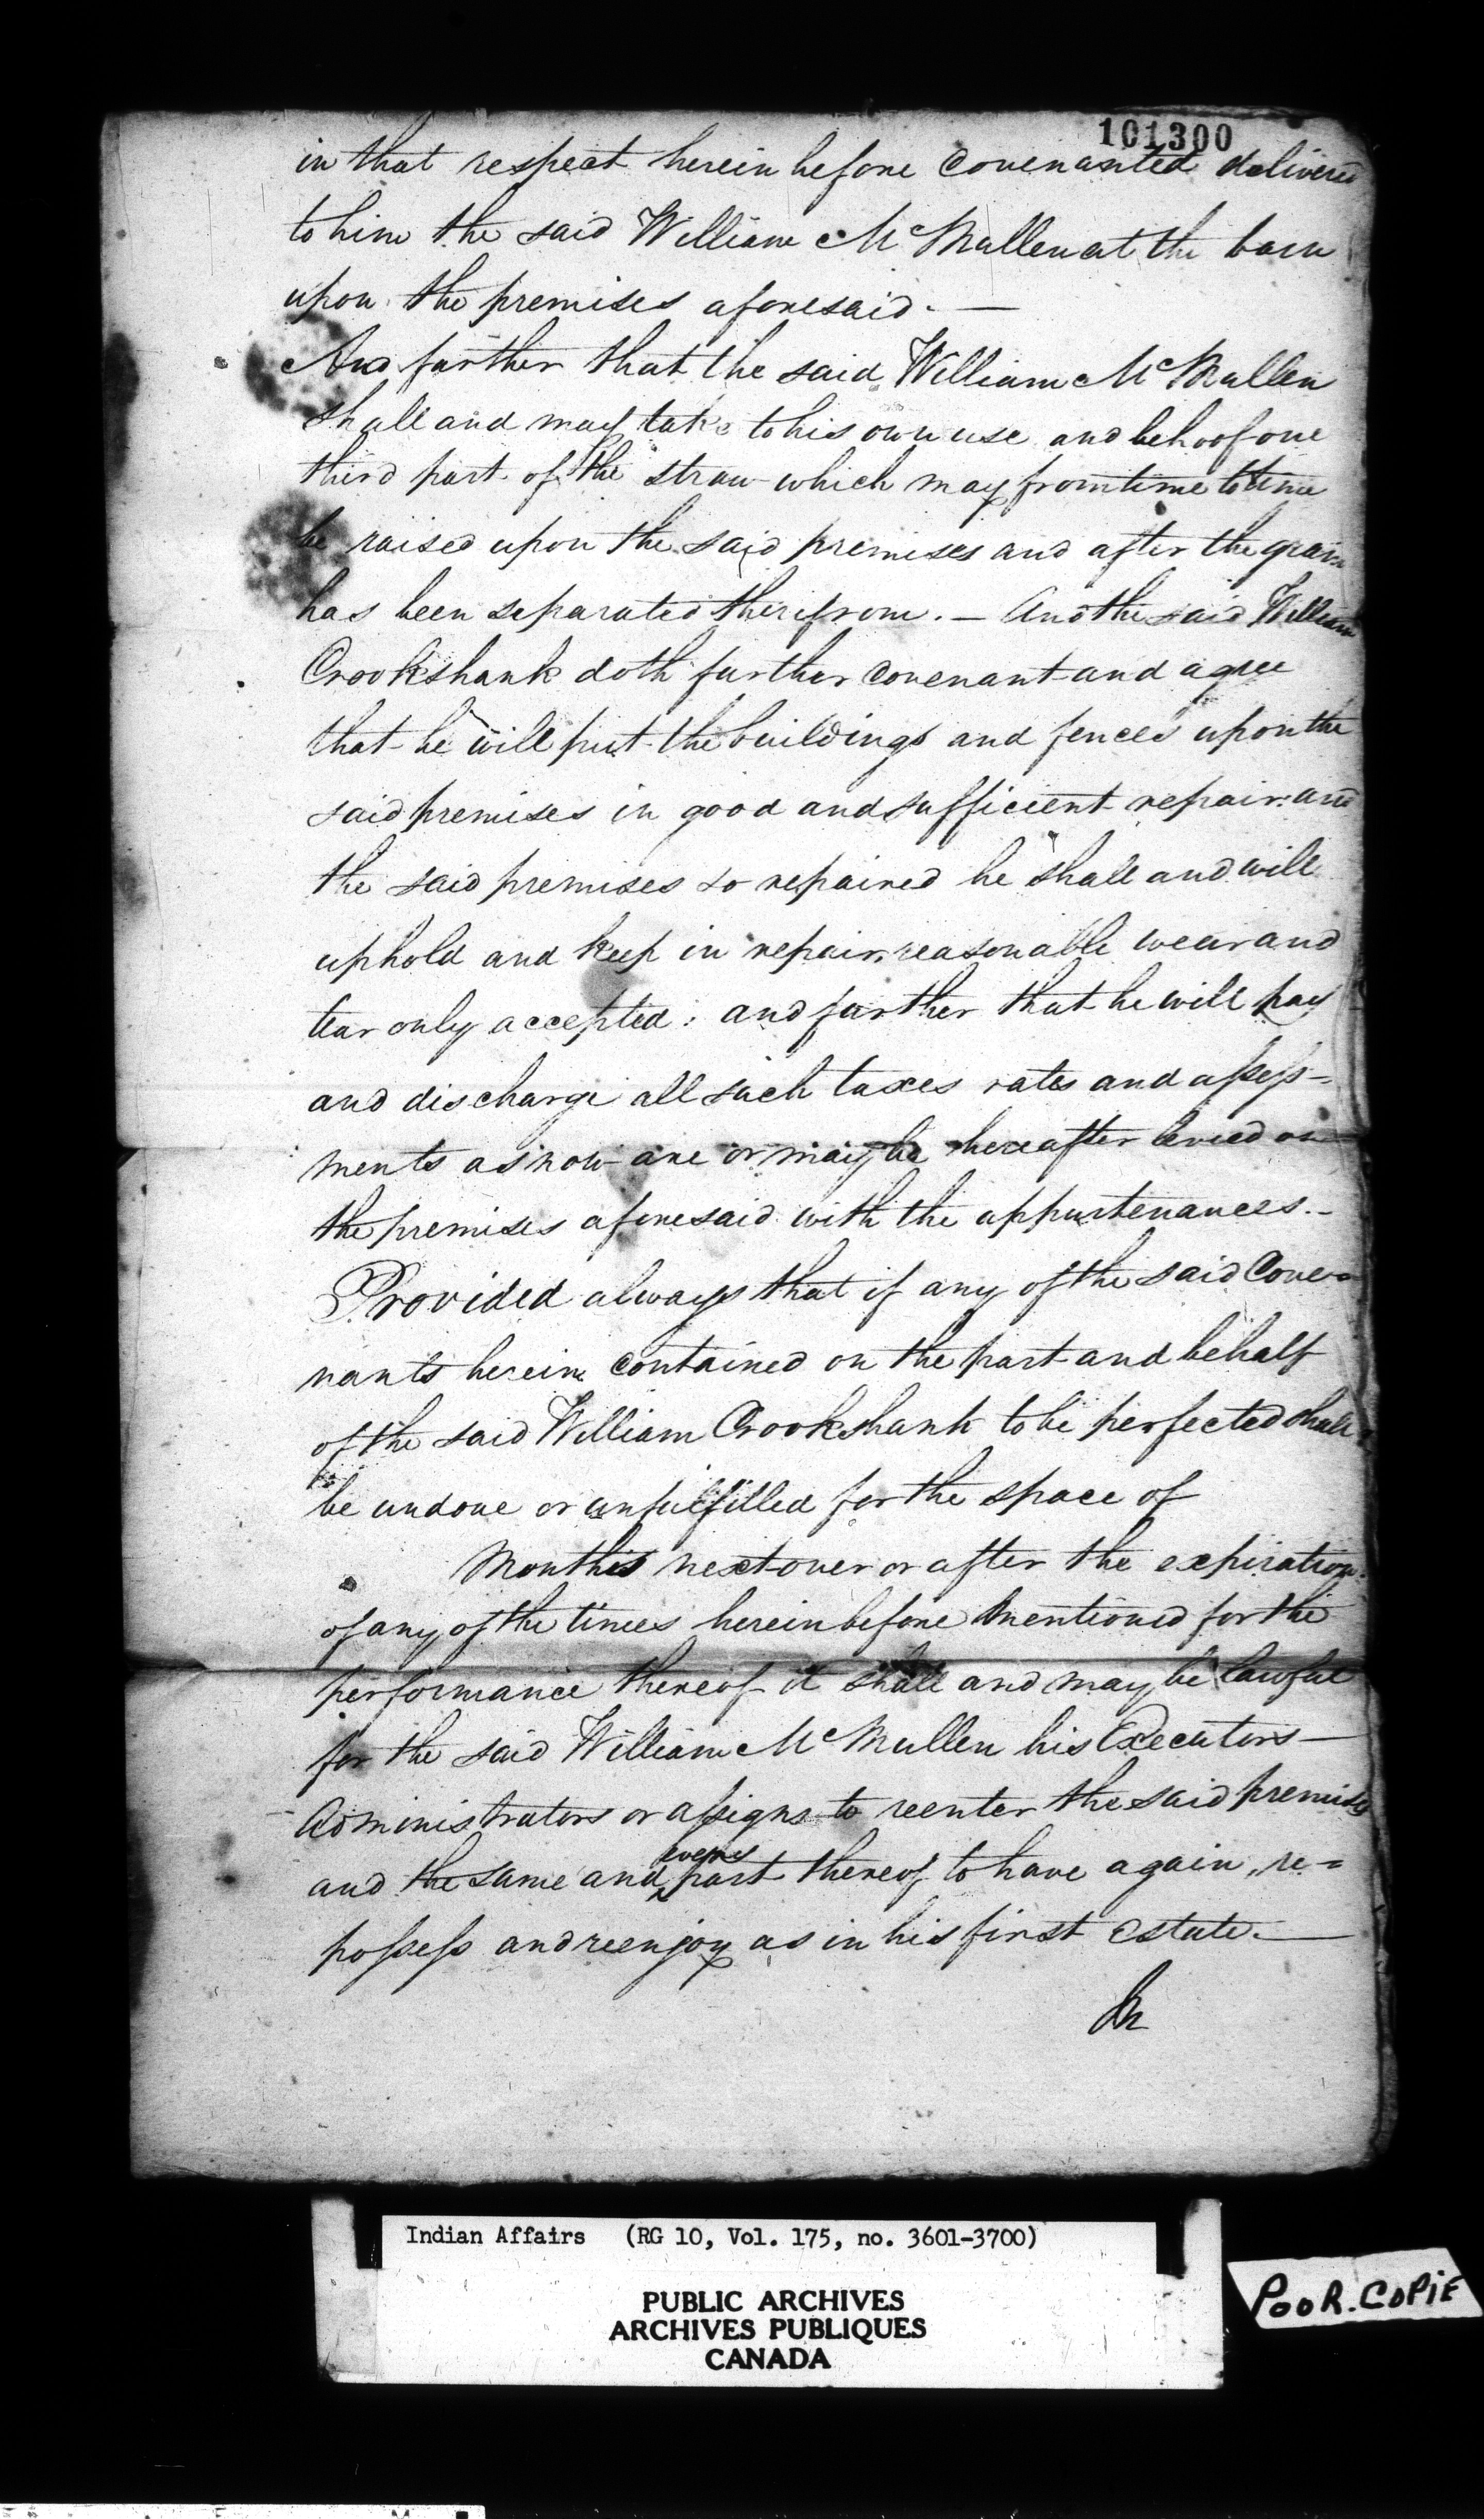 101300
in that respect herein before Covenanted delivered
to him the said William McMullen at the barn
upon the premises aforesaid. —
And further that the said William McMullen
shall and may take to his own use and behoof one
third part of the straw which may from time to time
be raised upon the said premises and after the grain
has been separated therefrom. — And the said William
Crookshank doth further covenant and agree
that he will put the buildings and fences upon the
said premises in good and sufficient repair: and
the said premises so repaired he shall and will
uphold and keep in repair, reasonable wear and
tear only accepted: and further that he will pay
and discharge all such taxes rates and assess-
ments as now are or may be hereafter levied on
the premises aforesaid with the appurtenances. -
Provided always that if any of the said Cove=
nants herein contained on the part and behalf
of the said William Crookshank to be perfected shall
be undone or unfulfilled for the space of
Months next over or after the expiration
of any of the times hereinbefore mentioned for the
performance thereof it shall and may be lawful
for the said William McMullen his Executors —
Administrators or assigns to reenter the said premises
and the same and every part thereof to have again, re=
possess and reenjoy as in his first Estate. —
Indian Affairs (RG 10, Vol. 175, no. 3601-3700)
PUBLIC ARCHIVES
ARCHIVES PUBLIQUES
CANADA
POOR.COPIE